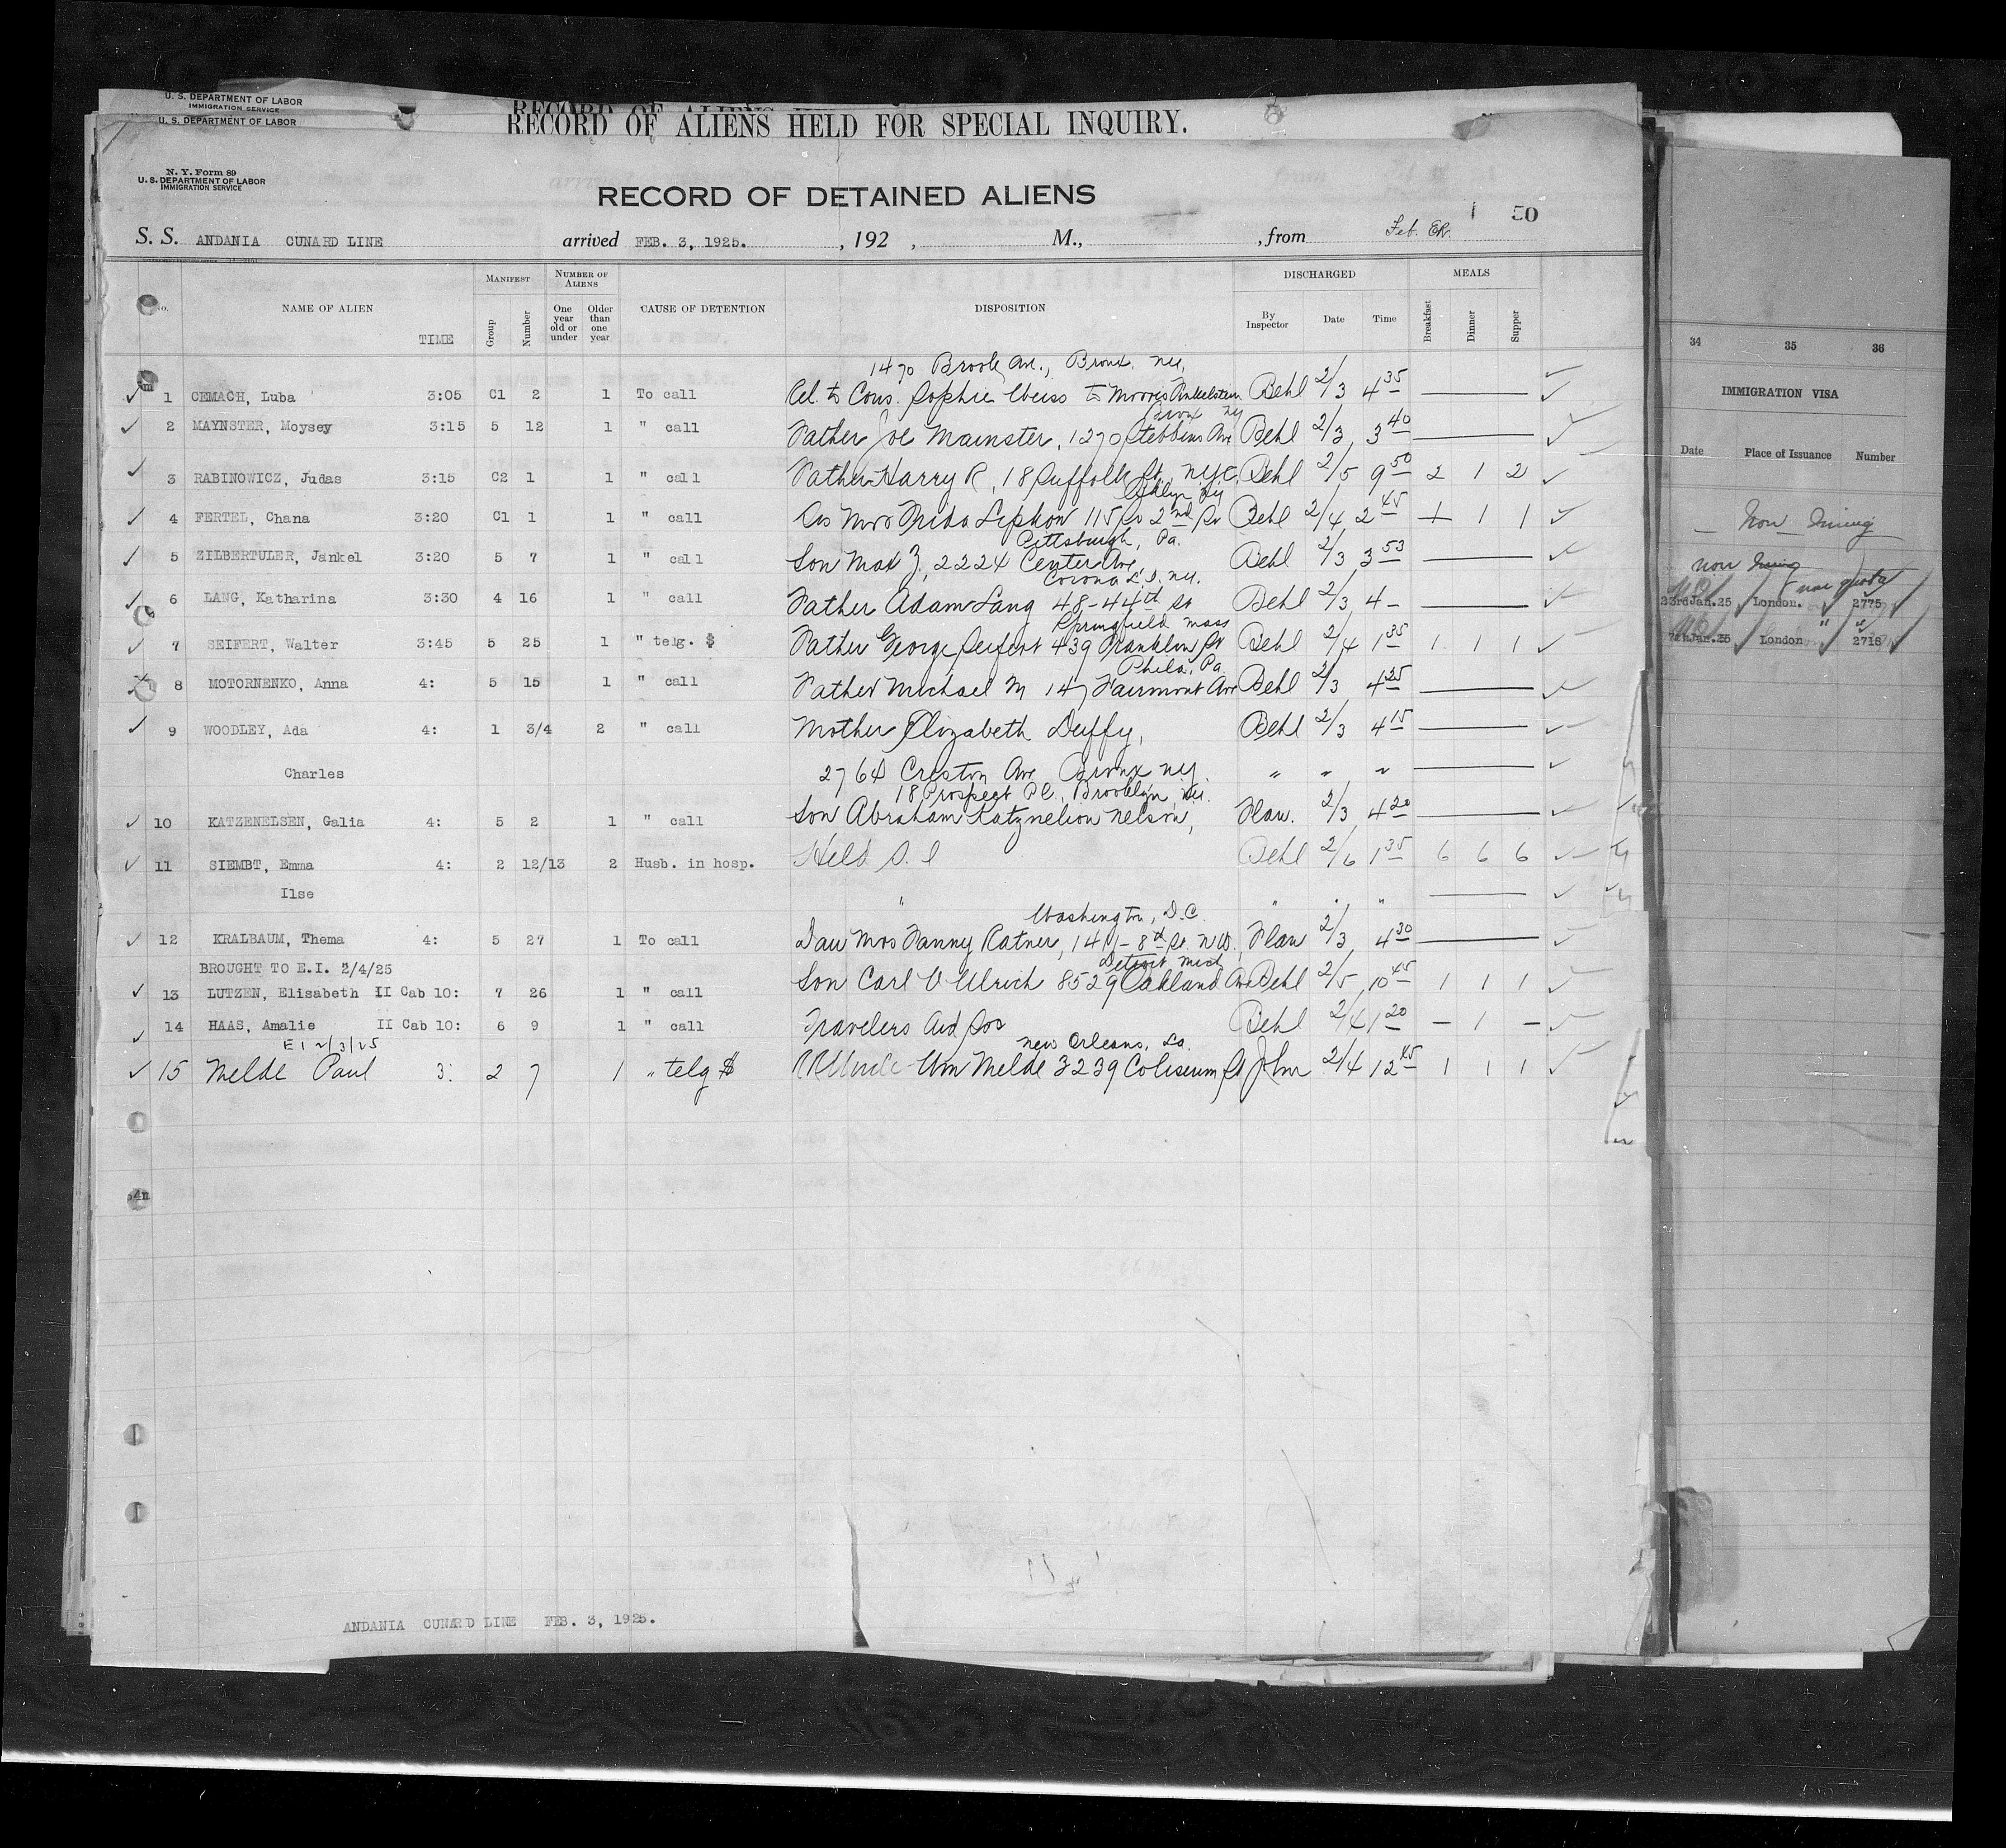 U. S. DEPARTMENT OF LABOR
IMMIGRATION SERVICE
U. S. DEPARTMENT OF LABOR
RECORD OF ALIENS HELD FOR SPECIAL INQUIRY.
N. Y. Form 89
U. S. DEPARTMENT OF LABOR
IMMIGRATION SERVICE
RECORD OF DETAINED ALIENS
50
S. S. ANDANIA CUNARD LINE arrived FEB. 3, 1925. , 192 , M., , from Feb.
No. NAME OF ALIEN TIME MANIFEST Group Number NUMBER OF ALIENS One year old or under Older than one year CAUSE OF DETENTION DISPOSITION DISCHARGED By Inspector Date Time MEALS Breakfast Dinner Supper
1470 Brook Av., Bronx. N.Y.
1 CEMACH, Luba 3:05 C1 2 1 To call Cous. Sophie Weiss to Morris Finkelstein Behl 2/3 4 35
Bronx NY
2 MAYNSTER, Moysey 3:15 5 12 1 " call Father Joe Mainster, 1270 Stebbins Ave Behl 2/3 3 40
3 RABINOWICZ, Judas 3:15 C2 1 1 " call Father Harry R, 18 Suffolk St., NYC, Behl 2/5 9 50 2 1 2
Bklyn Ny
4 FERTEL, Chana 3:20 C1 1 1 " call Mrs Frida Lipkow 115 So 2nd St Behl 2/4 2 45 1 1 1
Pittsburgh, Pa.
5 ZILBERTULER, Jankel 3:20 5 7 1 " call Son Max Z, 2224 Center Ave, Behl 2/3 3 53
Corona L.I. N.Y.
6 LANG, Katharina 3:30 4 16 1 " call Father Adam Lang 48-44th St Behl 2/3 4-
Springfield Mass
7 SEIFERT, Walter 3:45 5 25 1 " telg. $ Father George Seifert 439 Franklin St Behl 2/4 1 35 1 1 1
Phila, Pa
8 MOTORNENKO, Anna 4: 5 15 1 " call Father Michael M 147 Fairmont Ave Behl 2/3 4 25
9 WOODLEY, Ada 4: 1 3/4 2 " call Mother Elizabeth Duffy, Behl 2/3 4 15
Charles 2764 Creston Ave Bronx NY. " " "
18 Prospect Pl., Brooklyn, N.Y.
10 KATZENELSEN, Galia 4: 5 2 1 " call Son Abraham Katznelson Nelson, Flaw. 2/3 4 20
11 SIEMBT, Emma 4: 2 12/13 2 Husb. in hosp. Held S. I Behl 2/6 1 35 6 6 6
Ilse " " " "
Washington, D.C.
12 KRALBAUM, Thema 4: 5 27 1 To call Dau Mrs Fanny Ratner, 1411-8th St. N.W. Flaw 2/3 4 30
BROUGHT TO E.I. 2/4/25
Detroit Mich
13 LUTZEN, Elisabeth II Cab 10: 7 26 1 " call Son Carl V Ulrich 8529 Oakland Av. Behl 2/5 10 45 1 1 1
14 HAAS, Amalie II Cab 10: 6 9 1 " call Travelers Aid Soc Behl 2/4 1 20 - 1 -
E I 2/3/25 New Orleans, La.
15 Melde Paul 3: 2 7 1 " telg $ Uncle Wm Melde 3239 Coliseum St John 2/4 12 45 1 1 1
ANDANIA CUNARD LINE FEB. 3, 1925.
34 35 36
IMMIGRATION VISA
Date Place of Issuance Number
Non Immig
non Immig
non quota
23rd Jan. 25 London. 2775
7th Jan. 25 London " " 2718